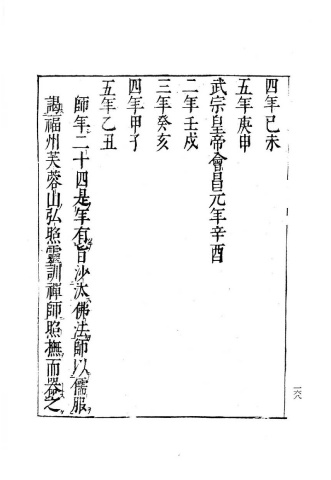 四年己未
五年庚申
武宗皇帝會昌元年辛酉
二年壬戌
三年癸亥
四年甲子
五年乙丑
師年二十四是年有旨沙汰佛法師以儒服
謁福州芙蓉山弘照靈訓禪師照撫而器之
一六八